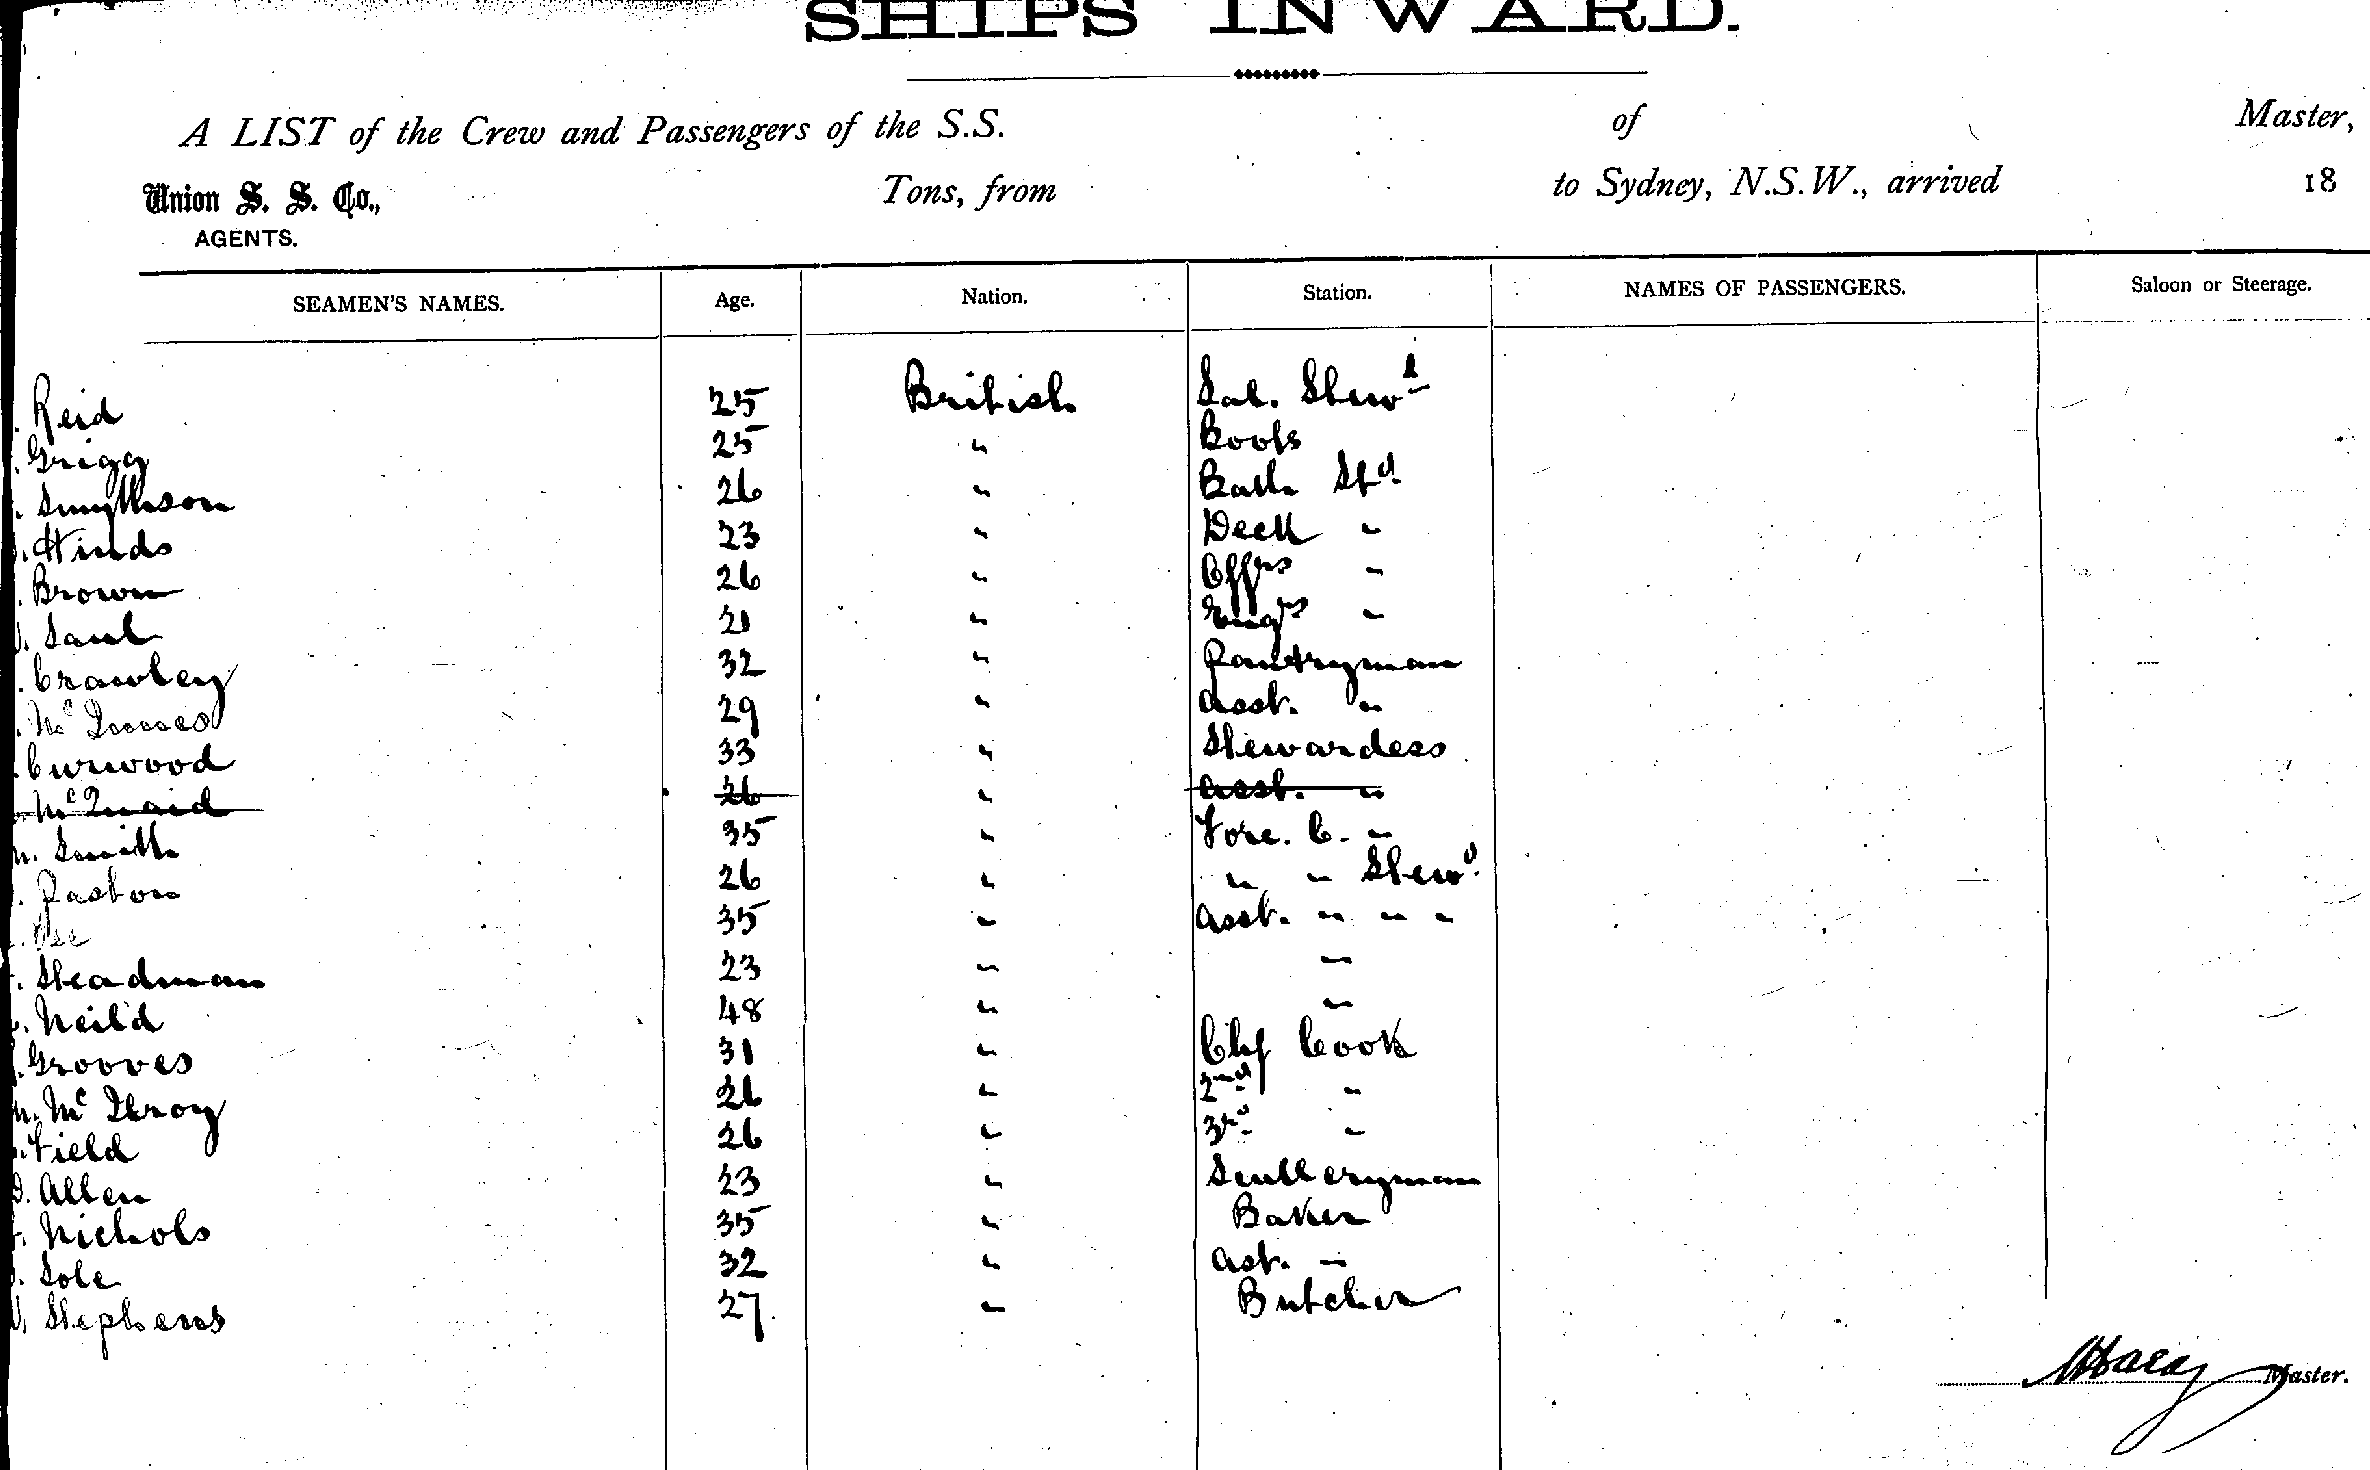 SHIPS INWARD.
A LIST of the Crew and Passengers of the S.S. of Master,
Union S. S. Co., Tons, from to Sydney, N.S.W., arrived 18
AGENTS.
SEAMEN'S NAMES. Age. Nation. Station. NAMES OF PASSENGERS. Saloon or Steerage.
Reid 25 British Sal. Stewd
Grigg 25 " Boots
Smythson 26 " Bath Std.
Hinds 23 " Deck "
Brown 26 " Offrs "
Saul 21 " Engrs "
Crawley 32 " Pantryman
Mc Innes 29 " Asst. "
Curwood 33 " Stewardess
Mc Quaid 26 " Asst. "
Smith 35 " Fore. C. "
Paston 26 " " " Stewd.
35 " Asst. " " "
Steadman 23 " "
Neild 48 " "
Grooves 31 " Chf Cook
Mc Ilroy 26 " 2nd "
Field 26 " 3rd "
Allen 23 " Sculleryman
Nichols 35 " Baker
Sole 32 " Ast. "
Stephens 27 " Butcher
Master.